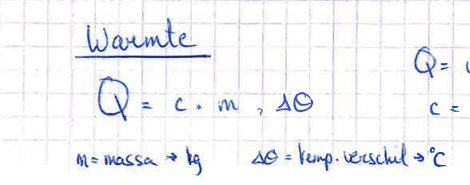 Warmte
Q =
Q = c . m . ΔΘ
c =
m = massa → kg ΔΘ = temp. verschil → °C